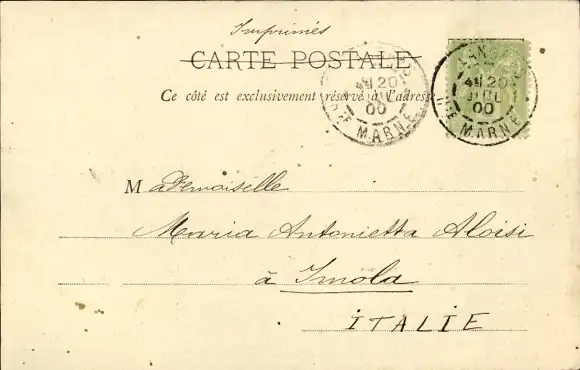 Imprimés
CARTE POSTALE
Ce côté est exclusivement réservé à l'adresse
20
JUIL
00
HTE MARNE
20
JUIL
00
HTE MARNE
Mademoiselle
Maria Antonietta Aloisi
à Imola
ITALIE